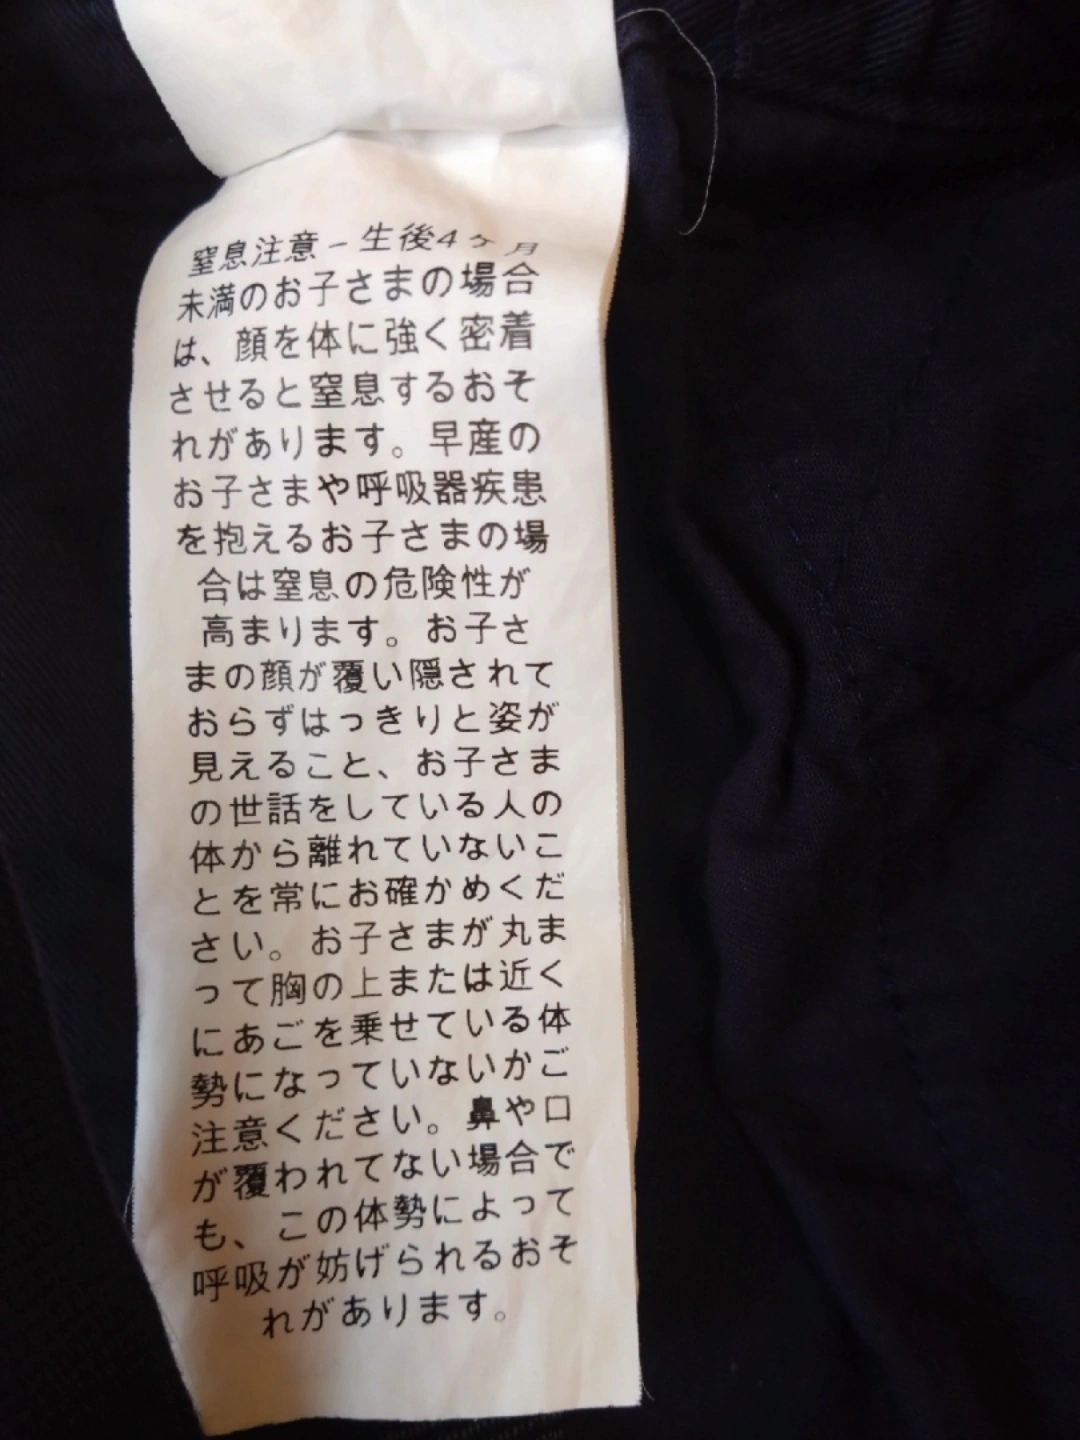 窒息注意 – 生後4ヶ月
未満のお子さまの場合
は、顔を体に強く密着
させると窒息するおそ
れがあります。早産の
お子さまや呼吸器疾患
を抱えるお子さまの場
合は窒息の危険性が
高まります。お子さ
まの顔が覆い隠されて
おらずはっきりと姿が
見えること、お子さま
の世話をしている人の
体から離れていないこ
とを常にお確かめくだ
さい。お子さまが丸ま
って胸の上または近く
にあごを乗せている体
勢になっていないかご
注意ください。鼻や口
が覆われてない場合で
も、この体勢によって
呼吸が妨げられるおそ
れがあります。